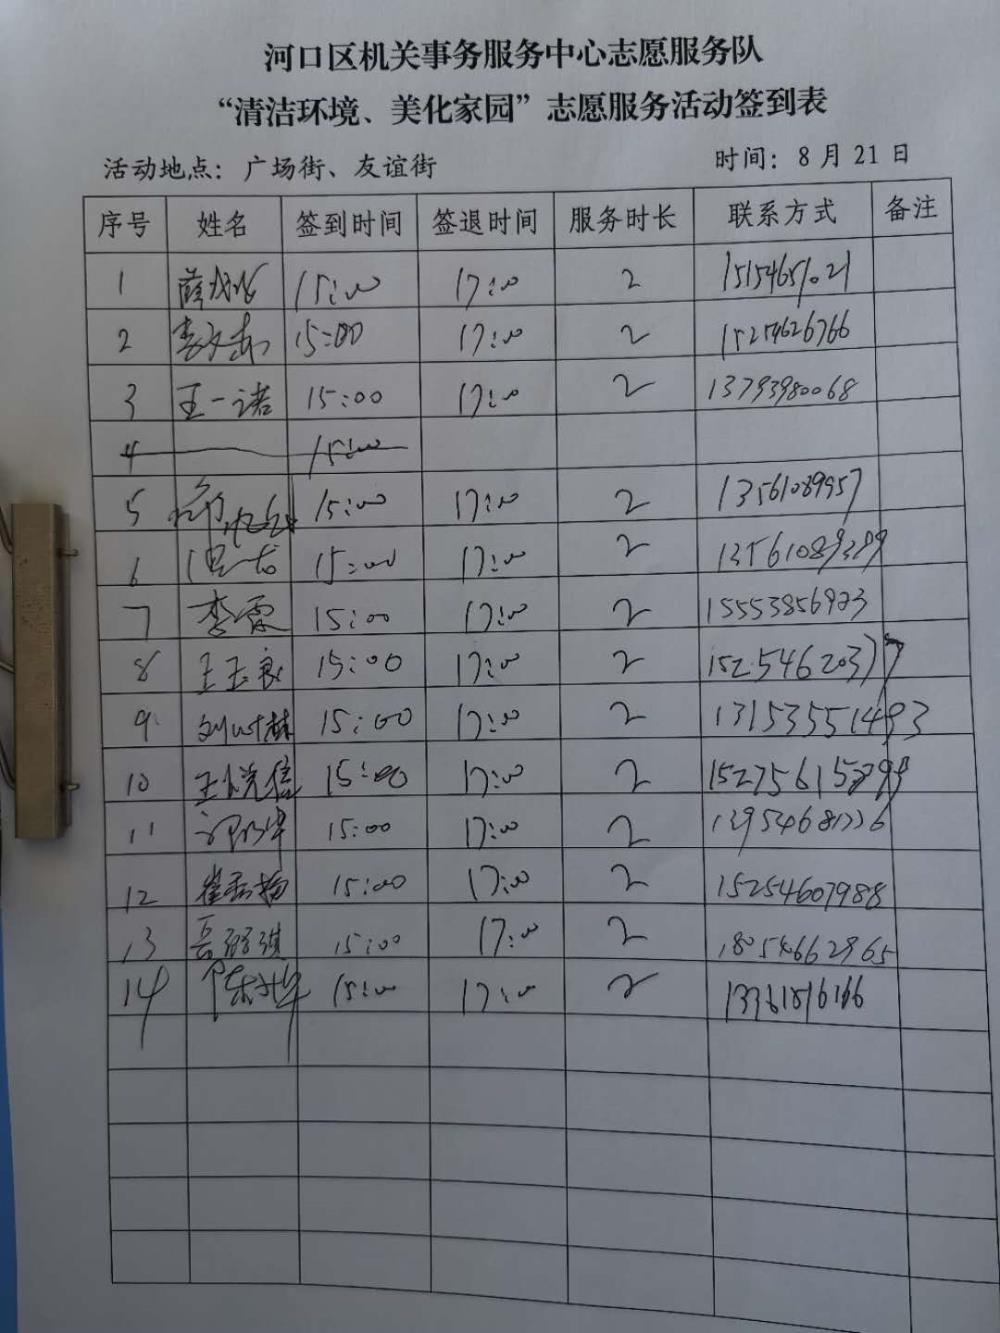 河口区机关事务服务中心志愿服务队
“清洁环境、美化家园”志愿服务活动签到表
活动地点：广场街、友谊街 时间：8月21日
序号 姓名 签到时间 签退时间 服务时长 联系方式 备注
1 15:00 17:00 2
2 15:00 17:00 2 15254626766
3 王一诺 15:00 17:00 2 13793980068
4 15:00
5 15:00 17:00 2 13561089957
6 15:00 17:00 2 13561089389
7 李霞 15:00 17:00 2 15553856923
8 王玉良 15:00 17:00 2 15254620377
9 15:00 17:00 2 13153551493
10 王悦信 15:00 17:00 2
11 15:00 17:00 2
12 15:00 17:00 2 15254607988
13 15:00 17:00 2 18054662965
14 15:00 17:00 2